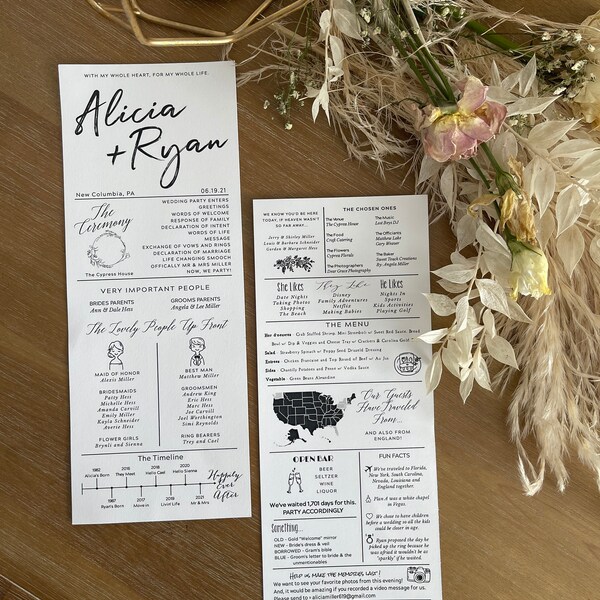 WITH MY WHOLE HEART, FOR MY WHOLE LIFE.
Alicia
+Ryan
New Columbia, PA
06.19.21
The
Ceremony
The Cypress House
WEDDING PARTY ENTERS
GREETINGS
WORDS OF WELCOME
RESPONSE OF FAMILY
DECLARATION OF INTENT
WORDS OF LIFE
MESSAGE
EXCHANGE OF VOWS AND RINGS
DECLARATION OF MARRIAGE
LIFE CHANGING SMOOCH
OFFICALLY MR & MRS MILLER
NOW, WE PARTY!
VERY IMPORTANT PEOPLE
BRIDES PARENTS
Ann & Dale Hess
GROOMS PARENTS
Angela & Lee Miller
The Lovely People Up Front
MAID OF HONOR
Alexis Miller
BRIDESMAIDS
Patty Hess
Michelle Hess
Amanda Carvill
Emily Miller
Kayla Schneider
Averie Hess
FLOWER GIRLS
Brynli and Sienna
BEST MAN
Matthew Miller
GROOMSMEN
Andrew King
Eric Hess
Marc Hess
Joe Carvill
Joel Worthington
Sims Reynolds
RING BEARERS
Trey and Cael
The Timeline
1982
Alicia's Born
1987
Ryan's Born
2016
They Meet
2017
Move in
2018
Hello Cael
2019
Livin' Life
2020
Hello Sienna
2021
Mr & Mrs
Happily
Ever
After
WE KNOW YOU'D BE HERE
TODAY, IF HEAVEN WASN'T
SO FAR AWAY...
Jerry & Shirley Miller
Louis & Barbara Schneider
Gordon & Margaret Hess
THE CHOSEN ONES
The Venue
The Cypress House
The Food
Craft Catering
The Flowers
Cypress Florals
The Photographers
Dear Grace Photography
The Music
Lee Boyz DJ
The Officients
Matthew Lake
Gary Weaver
The Baker
Sweet Touch Creations
By: Angela Miller
She Likes
Date Nights
Taking Photos
Shopping
The Beach
They Like
Disney
Family Adventures
Netflix
Making Babies
He Likes
Nights In
Sports
Kids Activities
Playing Golf
THE MENU
Entrees -
Sides -
Vegetable - Green Beans Almondine
Our Guests
Have Traveled
From...
AND ALSO FROM
ENGLAND!
OPEN BAR
BEER
SELTZER
WINE
LIQUOR
We've waited 1,701 days for this.
PARTY ACCORDINGLY
Something...
OLD - Gold "Welcome" mirror
NEW - Bride's dress & veil
BORROWED - Gram's bible
BLUE - Groom's letter to bride & the
unmentionables
FUN FACTS
We've traveled to Florida,
New York, South Carolina,
Nevada, Louisiana and
England together.
Plan A was a white chapel
in Vegas.
We chose to have children
before a wedding so all the kids
could be closer in age.
Ryan proposed the day he
picked up the ring because he
was afraid it wouldn't be as
"sparkly" if he waited.
HELP US MAKE THE MEMORIES LAST!
We want to see your favorite photos from this evening!
And, it would be amazing if you recorded a video message for us.
Please send to > aliciamiller619@gmail.com